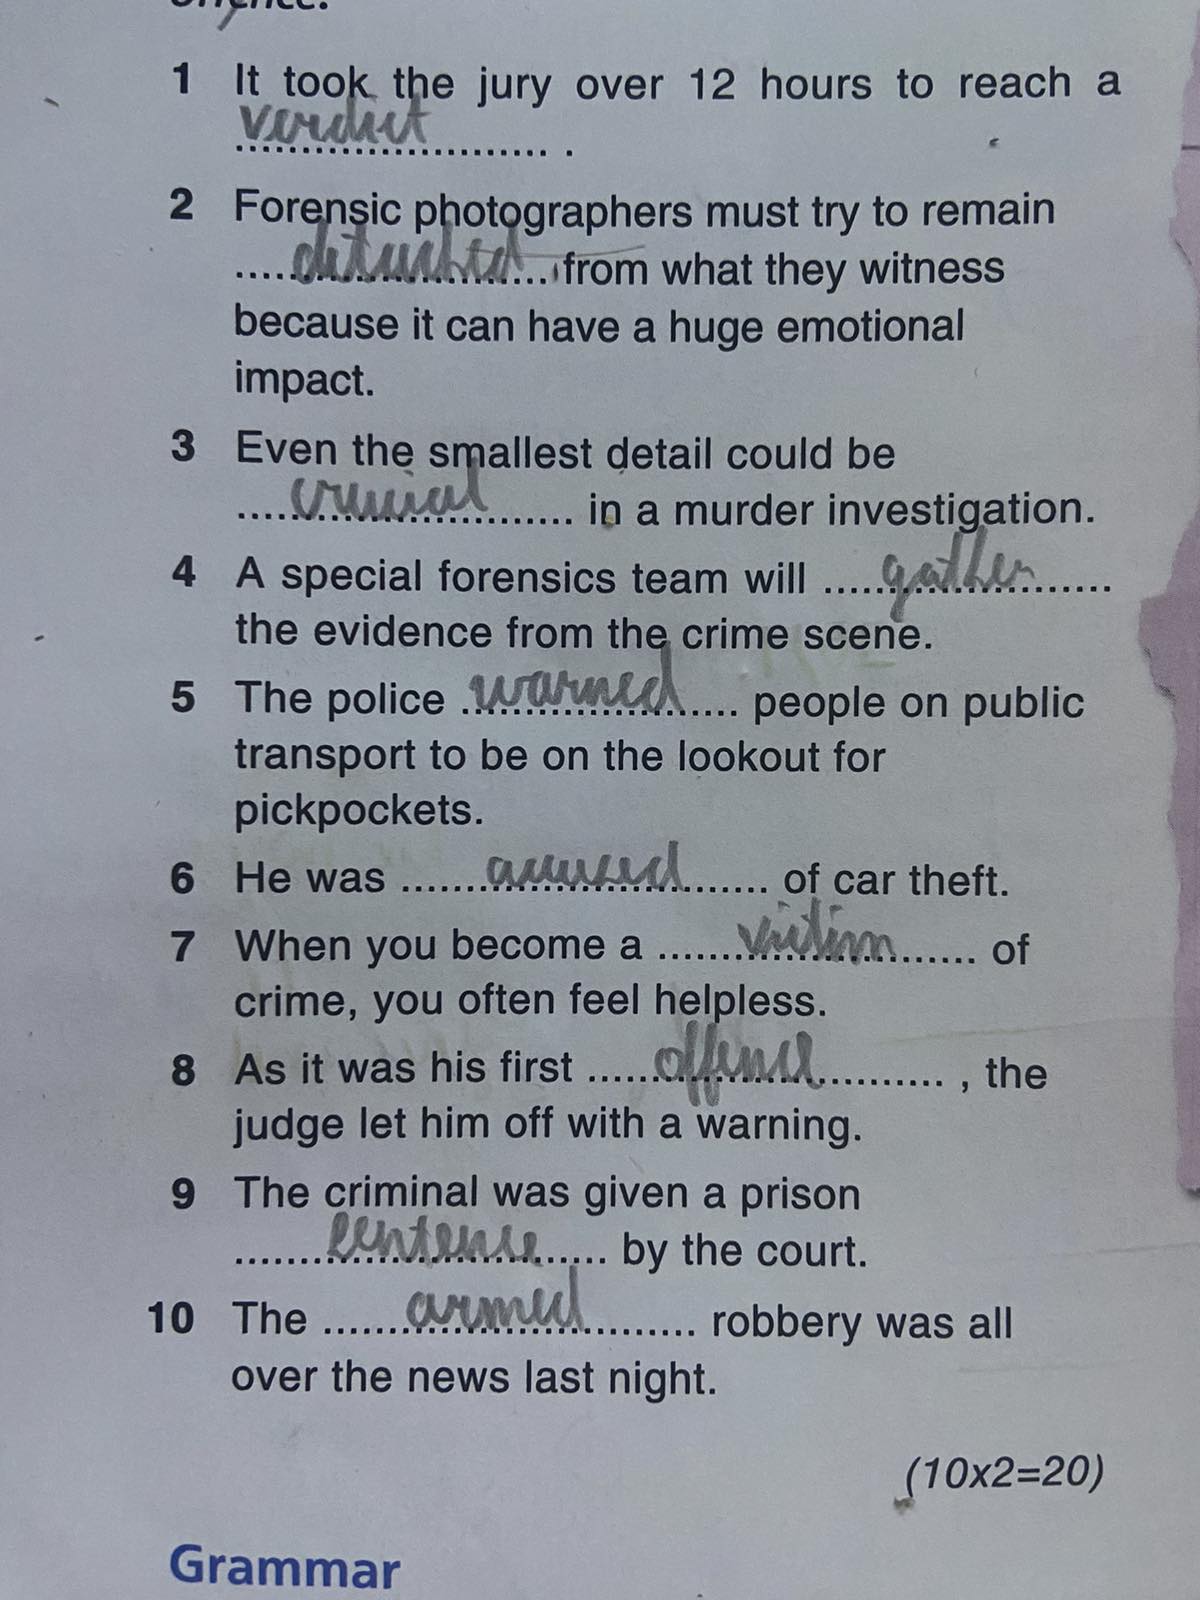 offence.
1 It took the jury over 12 hours to reach a
verdict .
2 Forensic photographers must try to remain
detached from what they witness
because it can have a huge emotional
impact.
3 Even the smallest detail could be
crucial in a murder investigation.
4 A special forensics team will gather
the evidence from the crime scene.
5 The police warned people on public
transport to be on the lookout for
pickpockets.
6 He was accused of car theft.
7 When you become a victim of
crime, you often feel helpless.
8 As it was his first offence , the
judge let him off with a warning.
9 The criminal was given a prison
sentence by the court.
10 The armed robbery was all
over the news last night.
(10x2=20)
Grammar